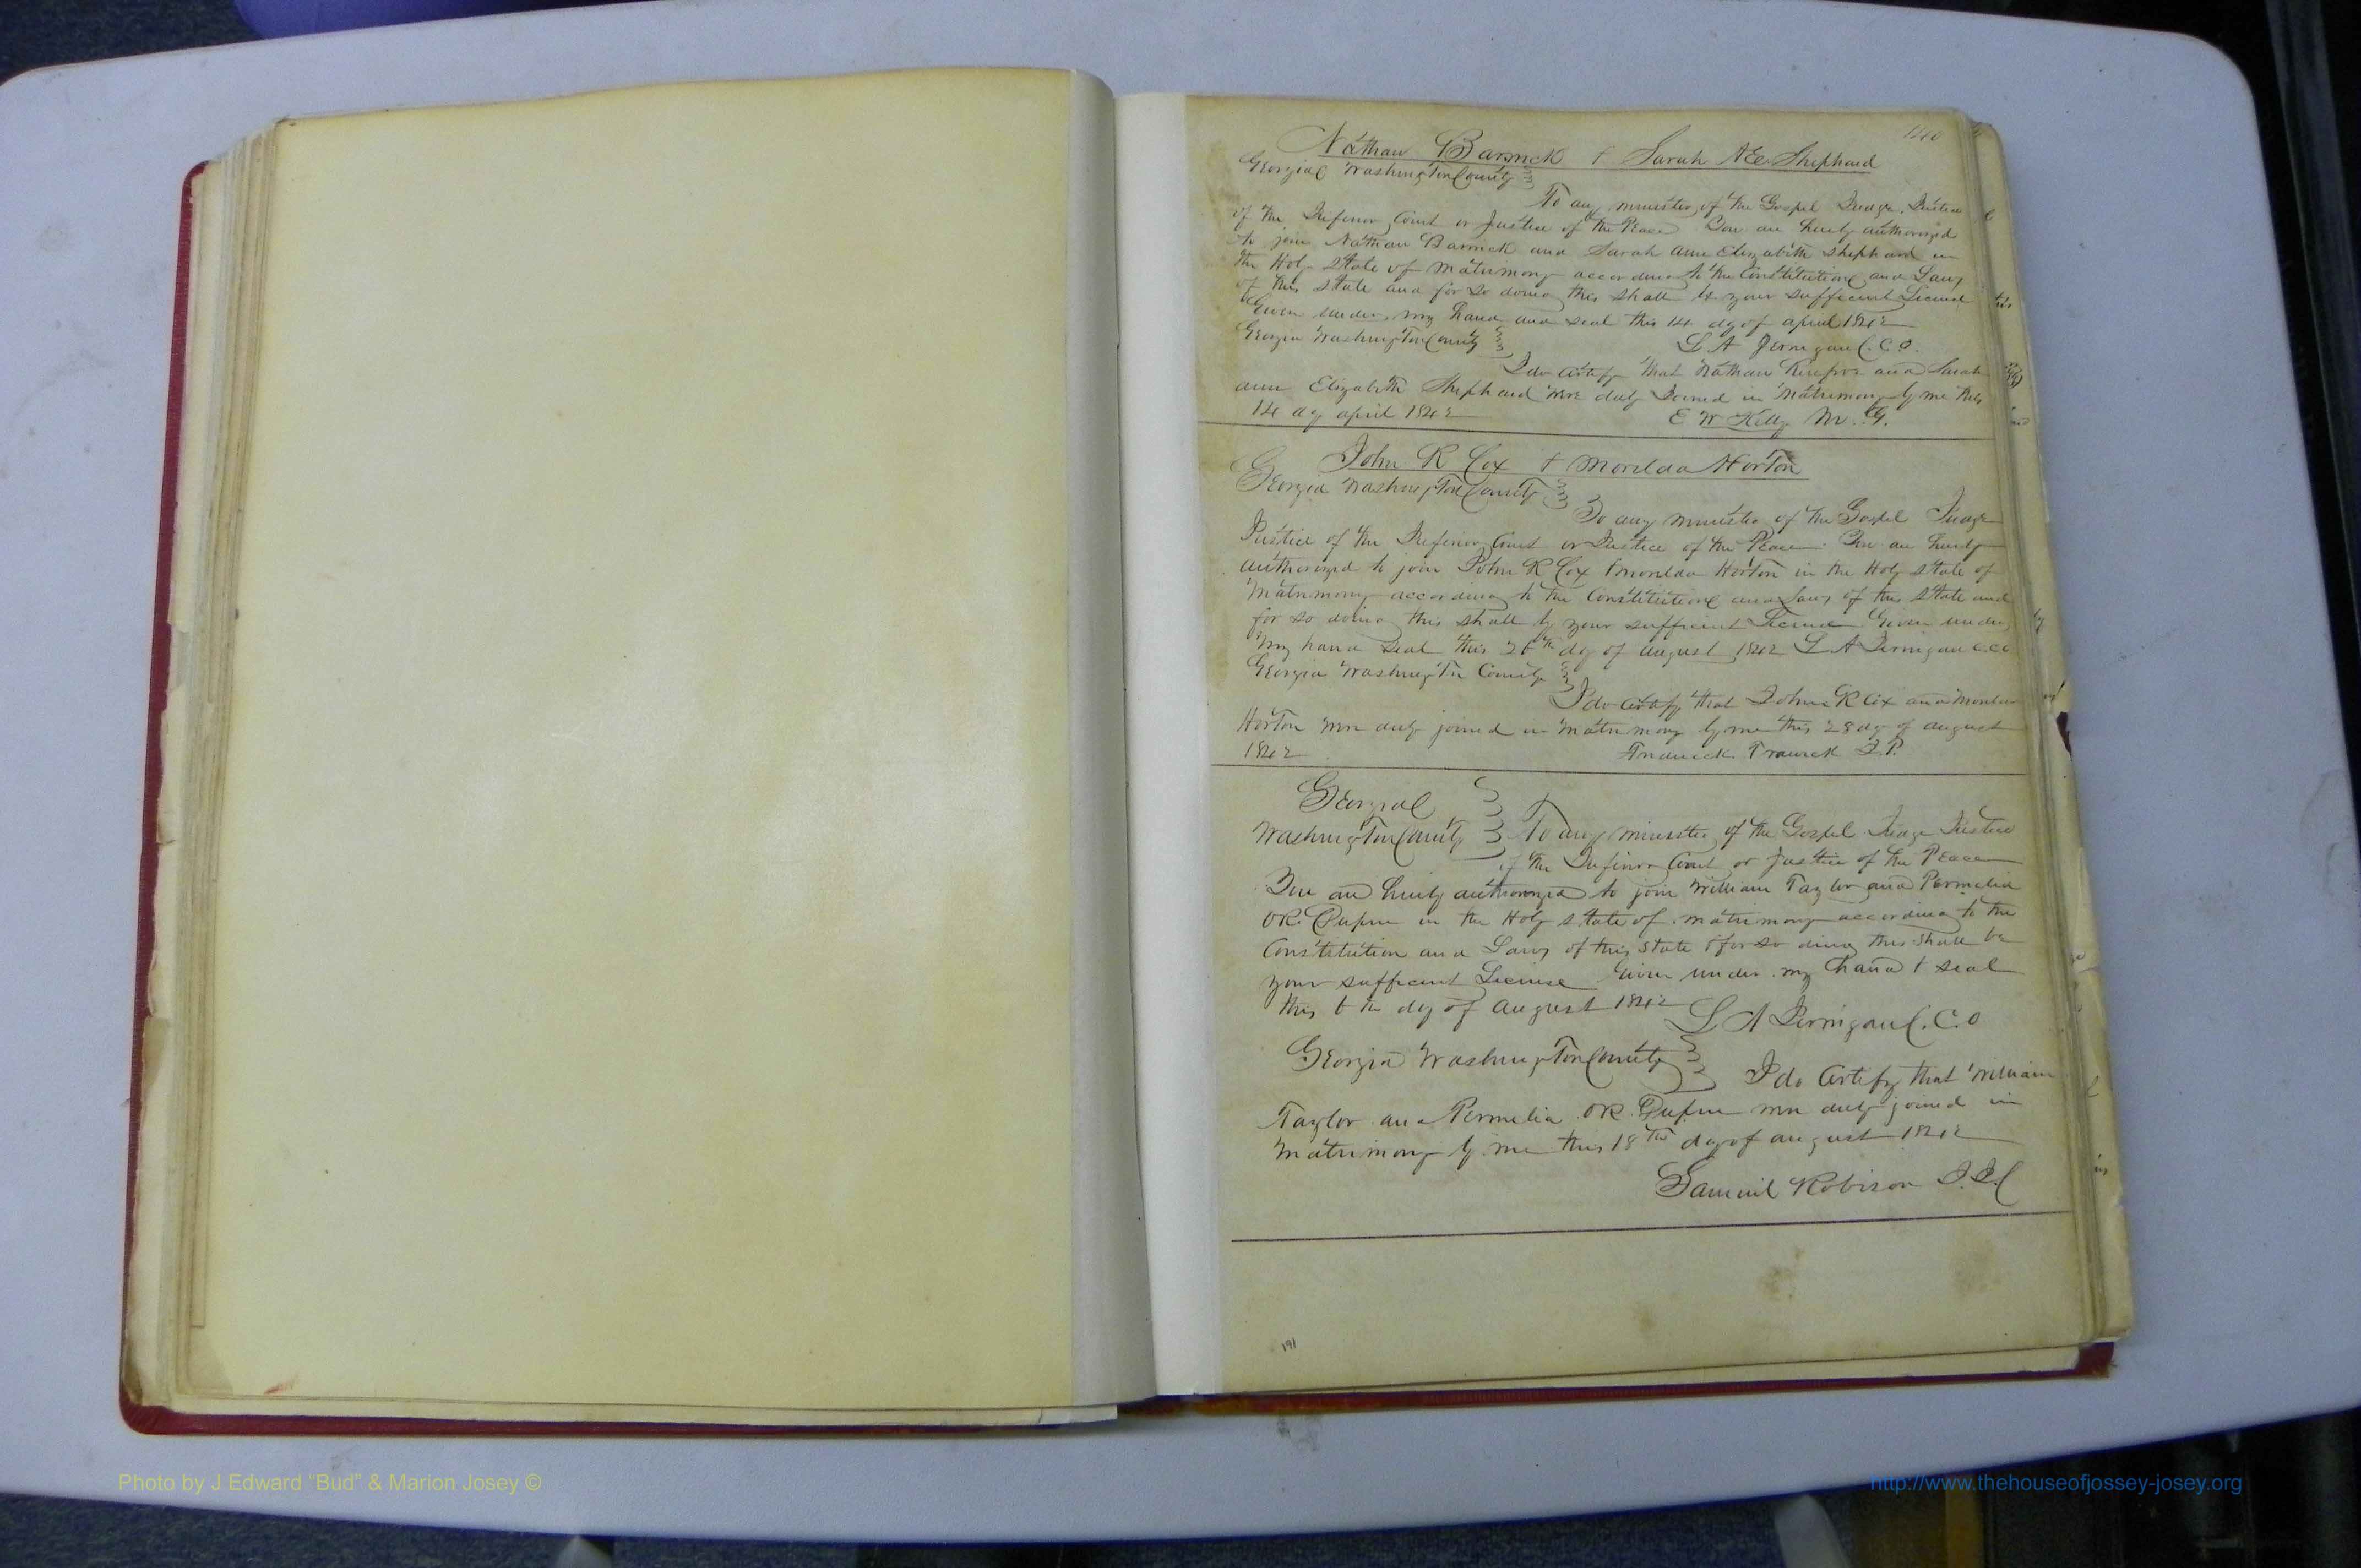 140
Nathan Barwick & Sarah A E Shephard
Georgia Washington County
To any minister of the Gospel Judge, Justice
of the Inferior Court or Justice of the Peace You are hereby authorized
to join Nathan Barwick and Sarah Ann Elizabeth Shephard in
the Holy State of Matrimony according to the Constitution and Laws
of this State and for so doing this shall be your sufficient License
Given under my hand and seal this 14 dy of april 1842
Georgia Washington County L A Jernigan C.C.O.
I do certify that Nathan and Sarah
ann Elizabeth Shephard were duly Joined in Matrimony by me this
14 dy april 1842 E W Kelly M.G.
John R Cox & Morilda Horton
Georgia Washington County
To any minister of the Gospel Judge
Justice of the Inferior Court or Justice of the Peace You are hereby
authorized to join John R Cox & Morilda Horton in the Holy State of
Matrimony according to the Constitution and Laws of this State and
for so doing this shall be your sufficient License Given under
my hand Seal this dy of august 1842 L A Jernigan C.C.O
Georgia Washington County
I do certify that John R Cox and
Horton were duly joined in Matrimony by me this 28 dy of august
1842 Fredrick Trawick J.P.
Georgia
Washington County To any minister of the Gospel Judge Justice
of the Inferior Court or Justice of the Peace
You are hereby authorized to join William Taylor and Permelia
in the Holy State of Matrimony according to the
Constitution and Laws of this State & for so doing this shall be
your sufficient License Given under my hand & seal
this 6 th dy of august 1842 L A Jernigan C.C.O
Georgia Washington County I do certify that William
Taylor and Permelia were duly joined in
Matrimony by me this 18th dy of august 1842
Samuel Robison J.I.C
191
Photo by J Edward “Bud” & Marion Josey ©
http://www.thehouseofjossey-josey.org